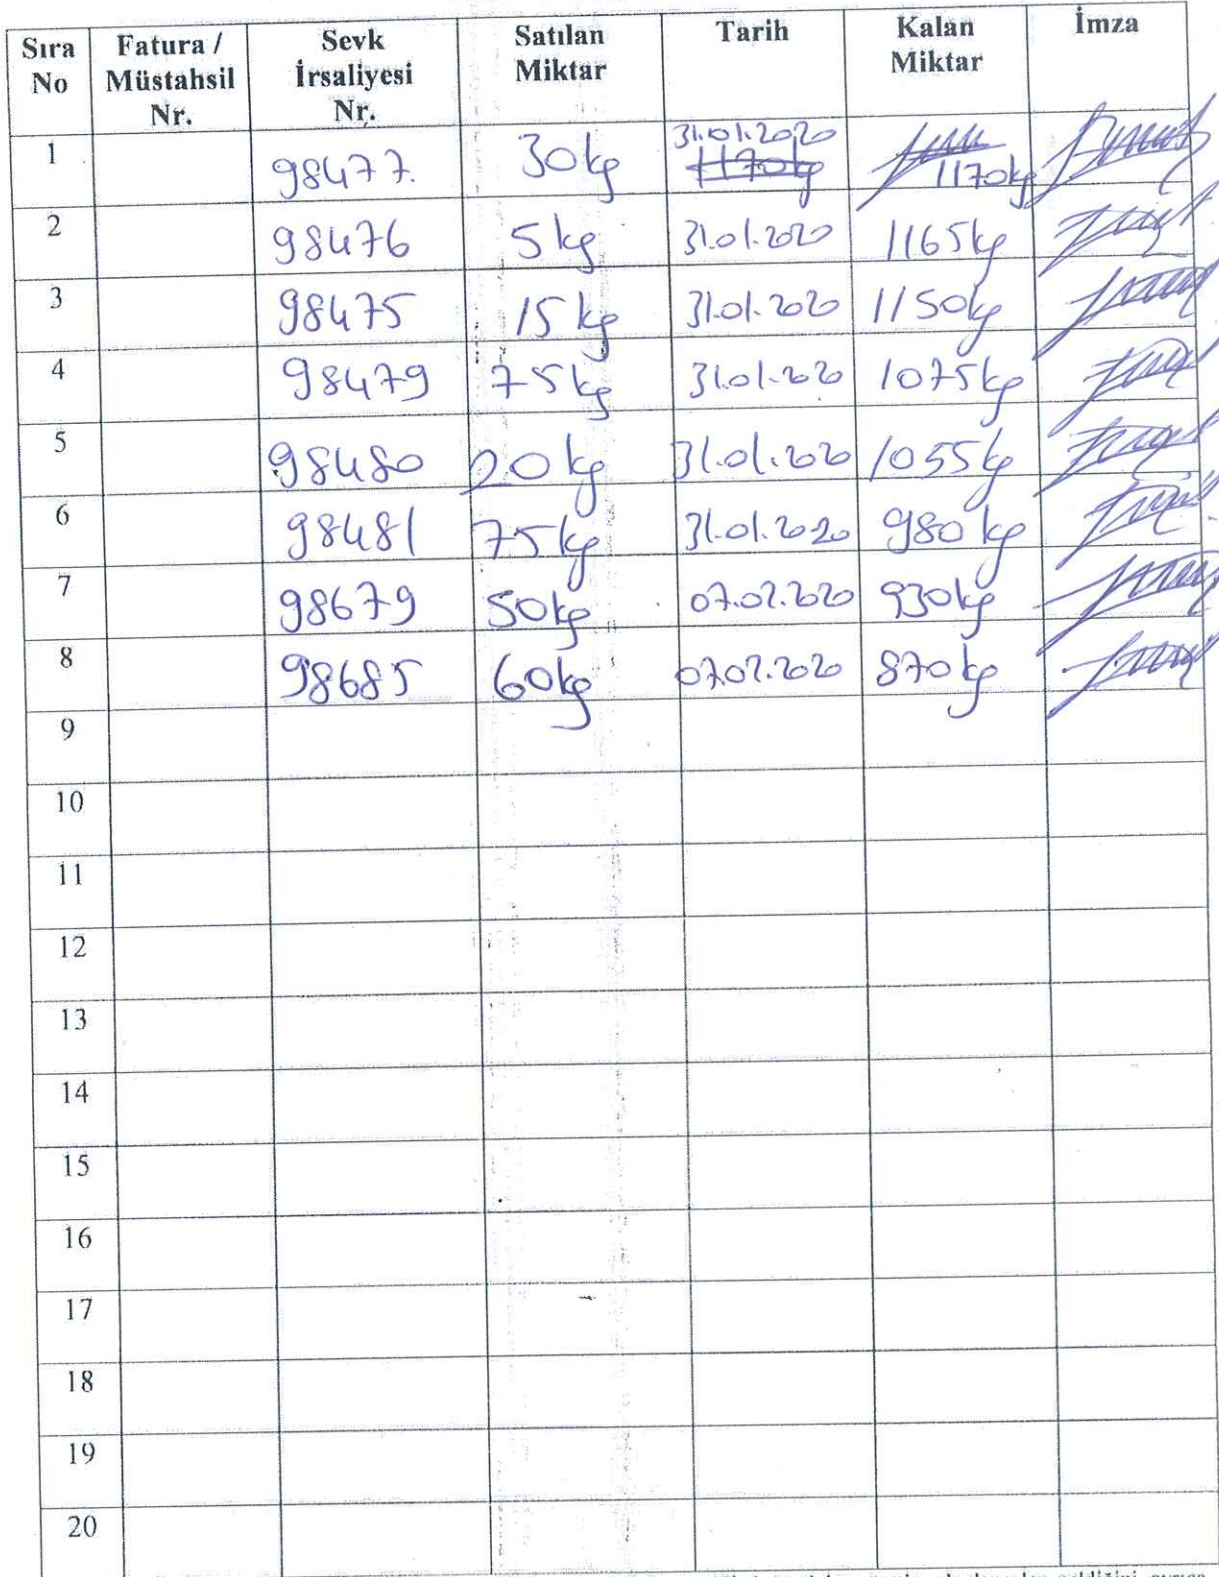 Sıra No | Fatura / Müstahsil Nr. | Sevk İrsaliyesi Nr. | Satılan Miktar | Tarih | Kalan Miktar | İmza
1 | | 98477. | 30kg | 31.01.2020 1170kg | 1170kg |
2 | | 98476 | 5kg | 31.01.2020 | 1165kg |
3 | | 98475 | 15kg | 31.01.2020 | 1150kg |
4 | | 98479 | 75kg | 31.01.2020 | 1075kg |
5 | | 98480 | 20kg | 31.01.2020 | 1055kg |
6 | | 98481 | 75kg | 31.01.2020 | 980kg |
7 | | 98679 | 50kg | 07.02.2020 | 930kg |
8 | | 98685 | 60kg | 07.02.2020 | 870kg |
9
10
11
12
13
14
15
16
17
18
19
20